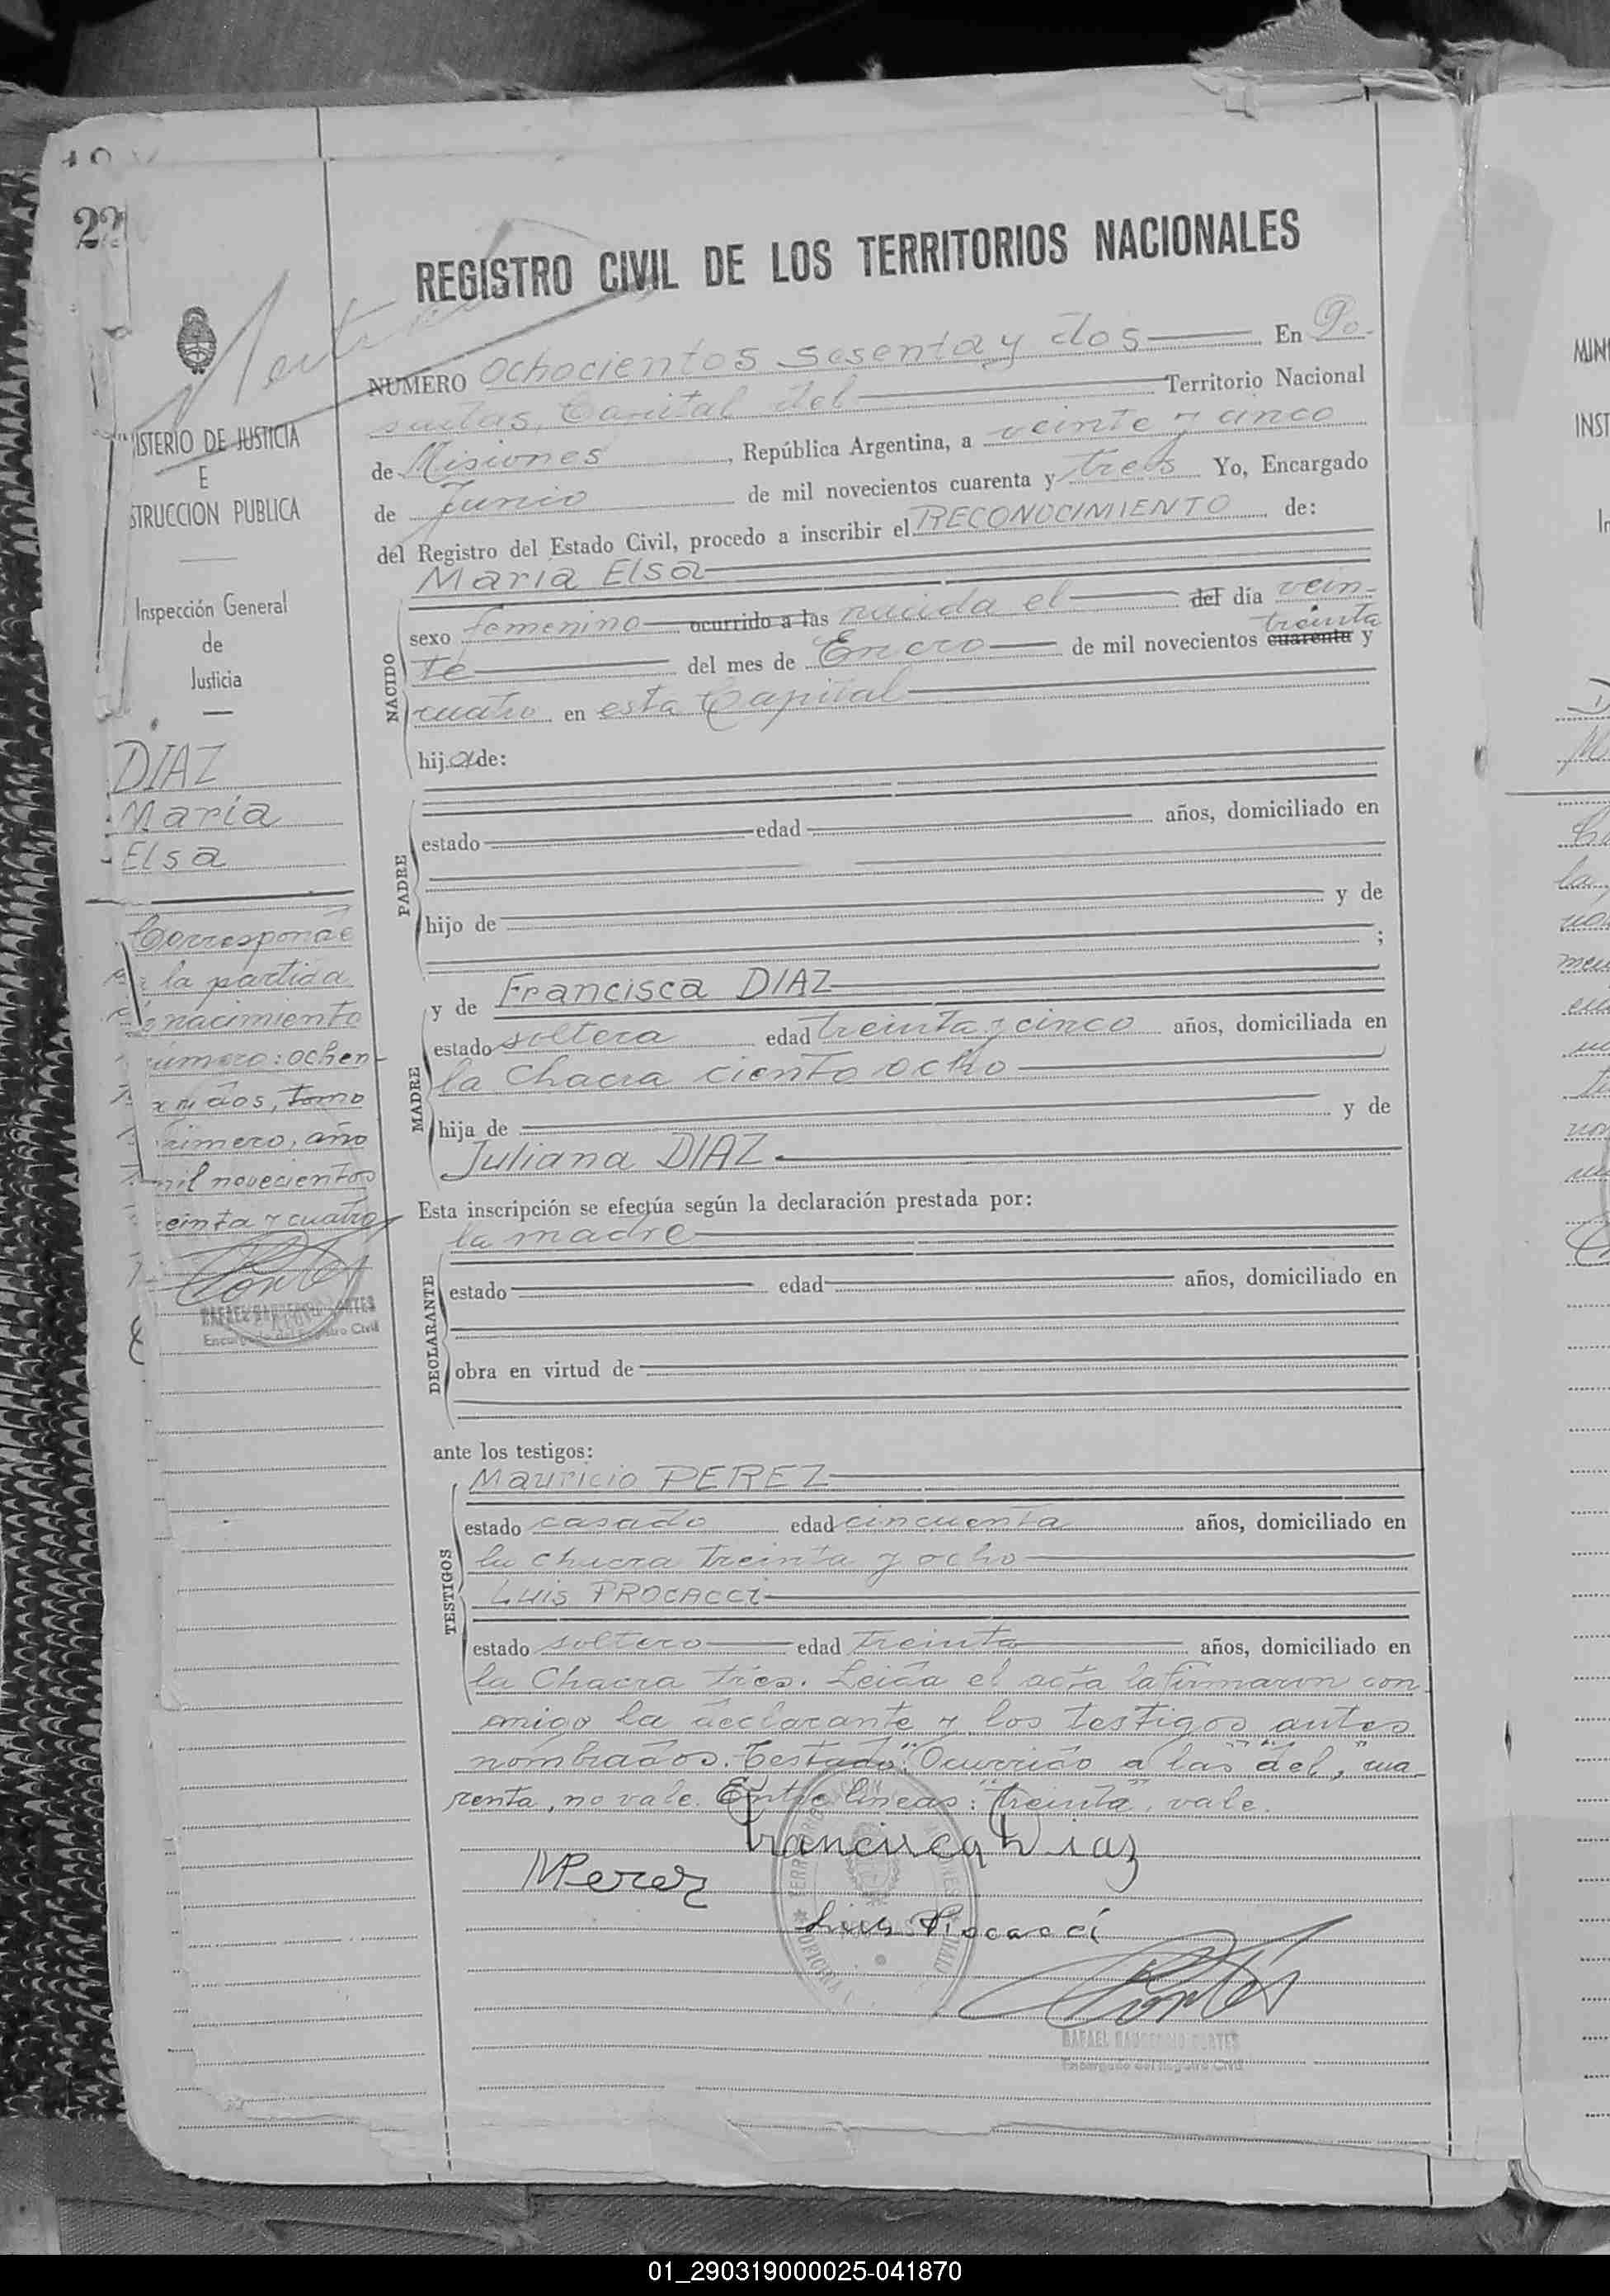 22
REGISTRO CIVIL DE LOS TERRITORIOS NACIONALES
NUMERO Ochocientos sesenta y dos En Po-
sadas, Capital del Territorio Nacional
de Misiones, República Argentina, a veinte y cinco
de Junio de mil novecientos cuarenta y tres Yo, Encargado
del Registro del Estado Civil, procedo a inscribir el RECONOCIMIENTO de:
Maria Elsa
NACIDO
sexo femenino ocurrido a las nacida el del día vein-
treinta
te del mes de Enero de mil novecientos cuarenta y
cuatro en esta Capital
hija de:
PADRE
estado edad años, domiciliado en
hijo de y de
;
MADRE
y de Francisca DIAZ
estado soltera edad treinta y cinco años, domiciliada en
la Chacra ciento ocho
hija de y de
Juliana DIAZ
Esta inscripción se efectúa según la declaración prestada por:
la madre
DECLARANTE
estado edad años, domiciliado en
obra en virtud de
ante los testigos:
TESTIGOS
Mauricio PEREZ
estado casado edad cincuenta años, domiciliado en
la chacra treinta y ocho
Luis PROCACCI
estado soltero edad treinta años, domiciliado en
la Chacra tres. Leida el acta la firmaron con
migo la declarante y los testigos antes
nombrados. Testado: "Ocurrido a las" "del", cua-
renta, no vale. Entre lineas: "treinta", vale.
Francisca Diaz
MPerez
Luis Procacci
Encargado del Registro Civil
ISTERIO DE JUSTICIA
E
STRUCCION PUBLICA
Inspección General
de
Justicia
DIAZ
Maria
Elsa
Corresponde
a la partida
nacimiento
número: ochen-
y dos, tomo
primero, año
mil novecientos
einta y cuatro
Encargado del Registro Civil
MIN
INST
01_290319000025-041870